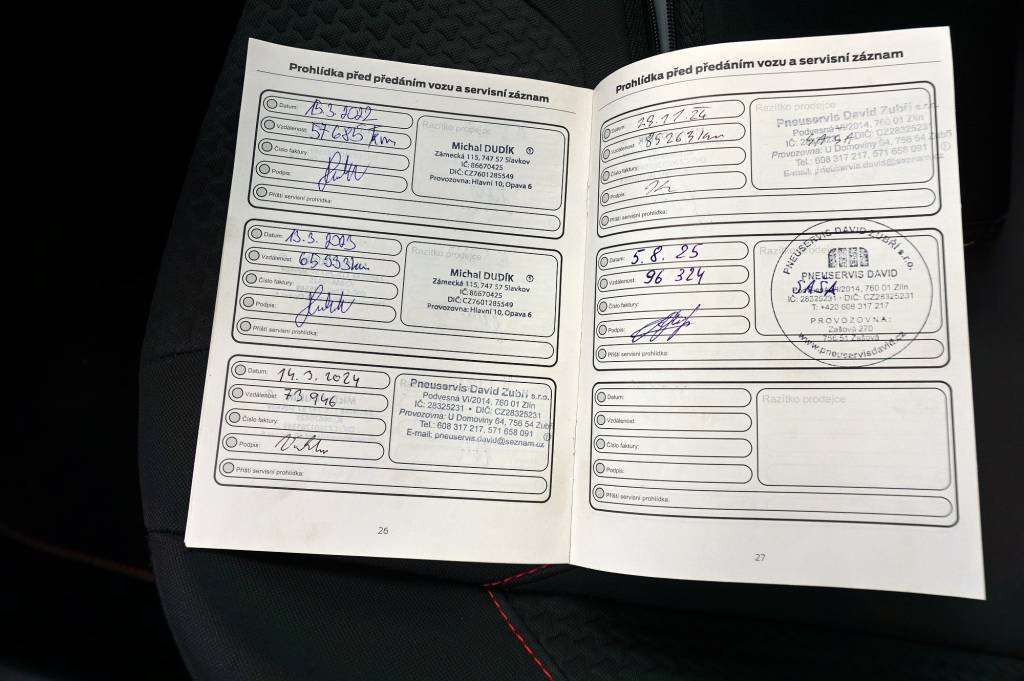 Prohlídka před předáním vozu a servisní záznam
Datum: 15.3.2022
Vzdálenost: 57685 km
Číslo faktury:
Podpis:
Příští servisní prohlídka:
Razítko prodejce
Michal DUDÍK ①
Zámecká 115, 747 57 Slavkov
IČ:86670425
DIČ:CZ7601285549
Provozovna: Hlavní 10, Opava 6
Datum: 13.3.2023
Vzdálenost: 65993km
Číslo faktury:
Podpis:
Příští servisní prohlídka:
Razítko prodejce
Michal DUDÍK ①
Zámecká 115, 747 57 Slavkov
IČ:86670425
DIČ:CZ7601285549
Provozovna: Hlavní 10, Opava 6
Datum: 14.3.2024
Vzdálenost: 73946
Číslo faktury:
Podpis:
Příští servisní prohlídka:
Pneuservis David Zubří s.r.o.
Podvesná VI/2014, 760 01 Zlín
IČ: 28325231 • DIČ: CZ28325231
Provozovna: U Domoviny 64, 756 54 Zubří
Tel.: 608 317 217, 571 658 091 ①
E-mail: pneuservis.david@seznam.cz
26
Prohlídka před předáním vozu a servisní záznam
Datum: 29.12.24
Vzdálenost: 85263km
Číslo faktury:
Podpis:
Příští servisní prohlídka:
Razítko prodejce
Pneuservis David Zubří s.r.o.
Podvesná VI/2014, 760 01 Zlín
IČ: DIČ: CZ28325231
SASA
Provozovna: U Domoviny 64, 756 54 Zubří
Tel.: 608 317 217, 571 658 091 ①
E-mail: pneuservis.david@seznam.cz
Datum: 5.8.25
Vzdálenost: 96 324
Číslo faktury:
Podpis:
Příští servisní prohlídka:
Razítko
PNEUSERVIS DAVID ZUBŘÍ s.r.o.
PNEUSERVIS DAVID
SASA
Podvesná VI/2014, 760 01 Zlín
IČ: 28325231 • DIČ: CZ28325231
T: +420 608 317 217
PROVOZOVNA:
Zašová 270
756 51 Zašová
www.pneuservisdavid.cz
Datum:
Vzdálenost:
Číslo faktury:
Podpis:
Příští servisní prohlídka:
Razítko prodejce
27